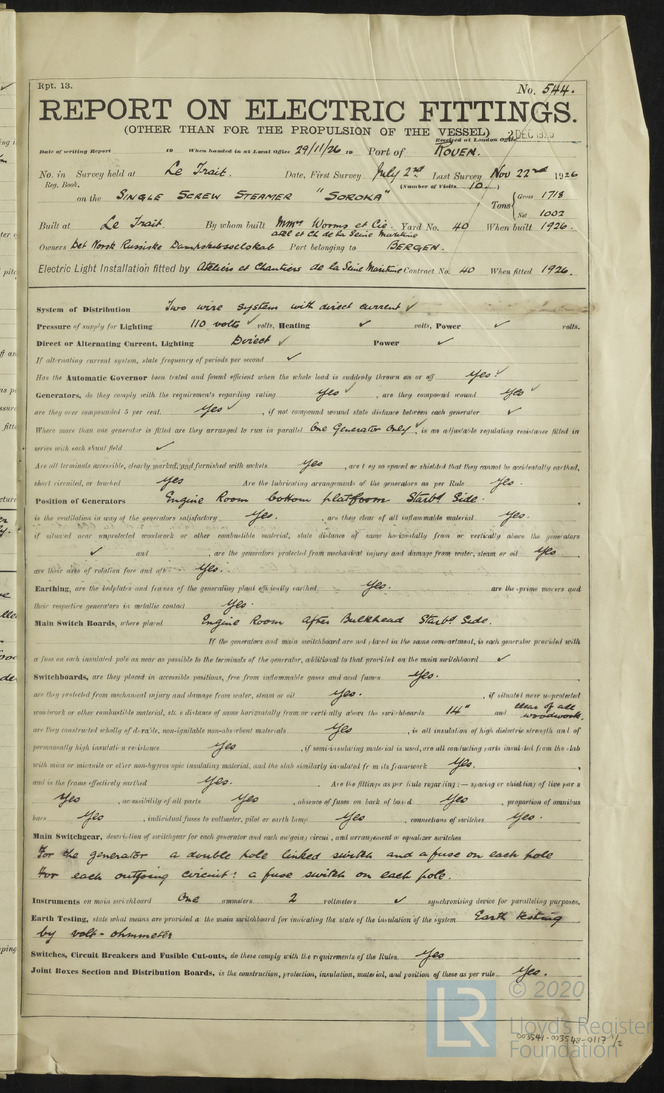 Rpt. 13.
No. 544.
REPORT ON ELECTRIC FITTINGS.
(OTHER THAN FOR THE PROPULSION OF THE VESSEL)
Received at London Office 2 DEC 1926
Date of writing Report 19 When handed in at Local Office 29/11/26 19 Port of ROUEN.
No. in Survey held at Le Trait. Date, First Survey July 2nd Last Survey Nov 22nd 1926
Reg. Book. (Number of Visits 10.)
on the SINGLE SCREW STEAMER "SOROKA" Tons { Gross 1718
Net 1002
Built at Le Trait. By whom built MMrs Worms et Cie. Yard No. 40 When built 1926.
atel et Ch de la Seine Maritime
Owners Det Norsk Russiske Dampskibsselskab Port belonging to BERGEN.
Electric Light Installation fitted by Ateliers et Chantiers de la Seine Maritime Contract No. 40 When fitted 1926.
System of Distribution Two wire system with direct current ✓
Pressure of supply for Lighting 110 volts ✓ volts, Heating ✓ volts, Power ✓ volts.
Direct or Alternating Current, Lighting Direct ✓ Power ✓
If alternating current system, state frequency of periods per second ✓
Has the Automatic Governor been tested and found efficient when the whole load is suddenly thrown on or off Yes ✓
Generators, do they comply with the requirements regarding rating Yes ✓ , are they compound wound Yes ✓
are they over compounded 5 per cent. Yes ✓ , if not compound wound state distance between each generator ✓
Where more than one generator is fitted are they arranged to run in parallel One Generator Only ✓ , is an adjustable regulating resistance fitted in
series with each shunt field ✓
Are all terminals accessible, clearly marked, and furnished with sockets Yes , are they so spaced or shielded that they cannot be accidentally earthed,
short circuited, or touched Yes Are the lubricating arrangements of the generators as per Rule Yes.
Position of Generators Engine Room bottom platform Starbd Side.
is the ventilation in way of the generators satisfactory Yes. , are they clear of all inflammable material Yes.
if situated near unprotected woodwork or other combustible material, state distance of same horizontally from or vertically above the generators
✓ and , are the generators protected from mechanical injury and damage from water, steam or oil Yes
are their axes of rotation fore and aft Yes.
Earthing, are the bedplates and frames of the generating plant efficiently earthed Yes. are the prime movers and
their respective generators in metallic contact Yes.
Main Switch Boards, where placed Engine Room After Bulkhead Starbd Side.
If the generators and main switchboard are not placed in the same compartment, is each generator provided with
a fuse on each insulated pole as near as possible to the terminals of the generator, additional to that provided on the main switchboard ✓
Switchboards, are they placed in accessible positions, free from inflammable gases and acid fumes Yes.
are they protected from mechanical injury and damage from water, steam or oil Yes. , if situated near unprotected
woodwork or other combustible material, state distance of same horizontally from or vertically above the switchboards 14" and clear of all
woodwork.
are they constructed wholly of durable, non-ignitable non-absorbent materials Yes , is all insulation of high dielectric strength and of
permanently high insulation resistance Yes , if semi-insulating material is used, are all conducting parts insulated from the slab
with mica or micanite or other non-hygroscopic insulating material, and the slab similarly insulated from its framework Yes.
and is the frame effectively earthed Yes. Are the fittings as per Rule regarding:— spacing or shielding of live parts
Yes , accessibility of all parts Yes , absence of fuses on back of board Yes , proportion of omnibus
bars Yes , individual fuses to voltmeter, pilot or earth lamp Yes , connections of switches Yes.
Main Switchgear, description of switchgear for each generator and each outgoing circuit, and arrangement of equalizer switches
For the generator a double pole linked switch and a fuse on each pole
For each outgoing circuit: a fuse switch on each pole.
Instruments on main switchboard One ammeters 2 voltmeters ✓ synchronising device for paralleling purposes.
Earth Testing, state what means are provided at the main switchboard for indicating the state of the insulation of the system Earth testing
by volt-ohmmeter
Switches, Circuit Breakers and Fusible Cut-outs, do these comply with the requirements of the Rules Yes
Joint Boxes Section and Distribution Boards, is the construction, protection, insulation, material, and position of these as per rule Yes.
© 2020
LR Lloyd's Register
Foundation
003541-003548-0117 1/2